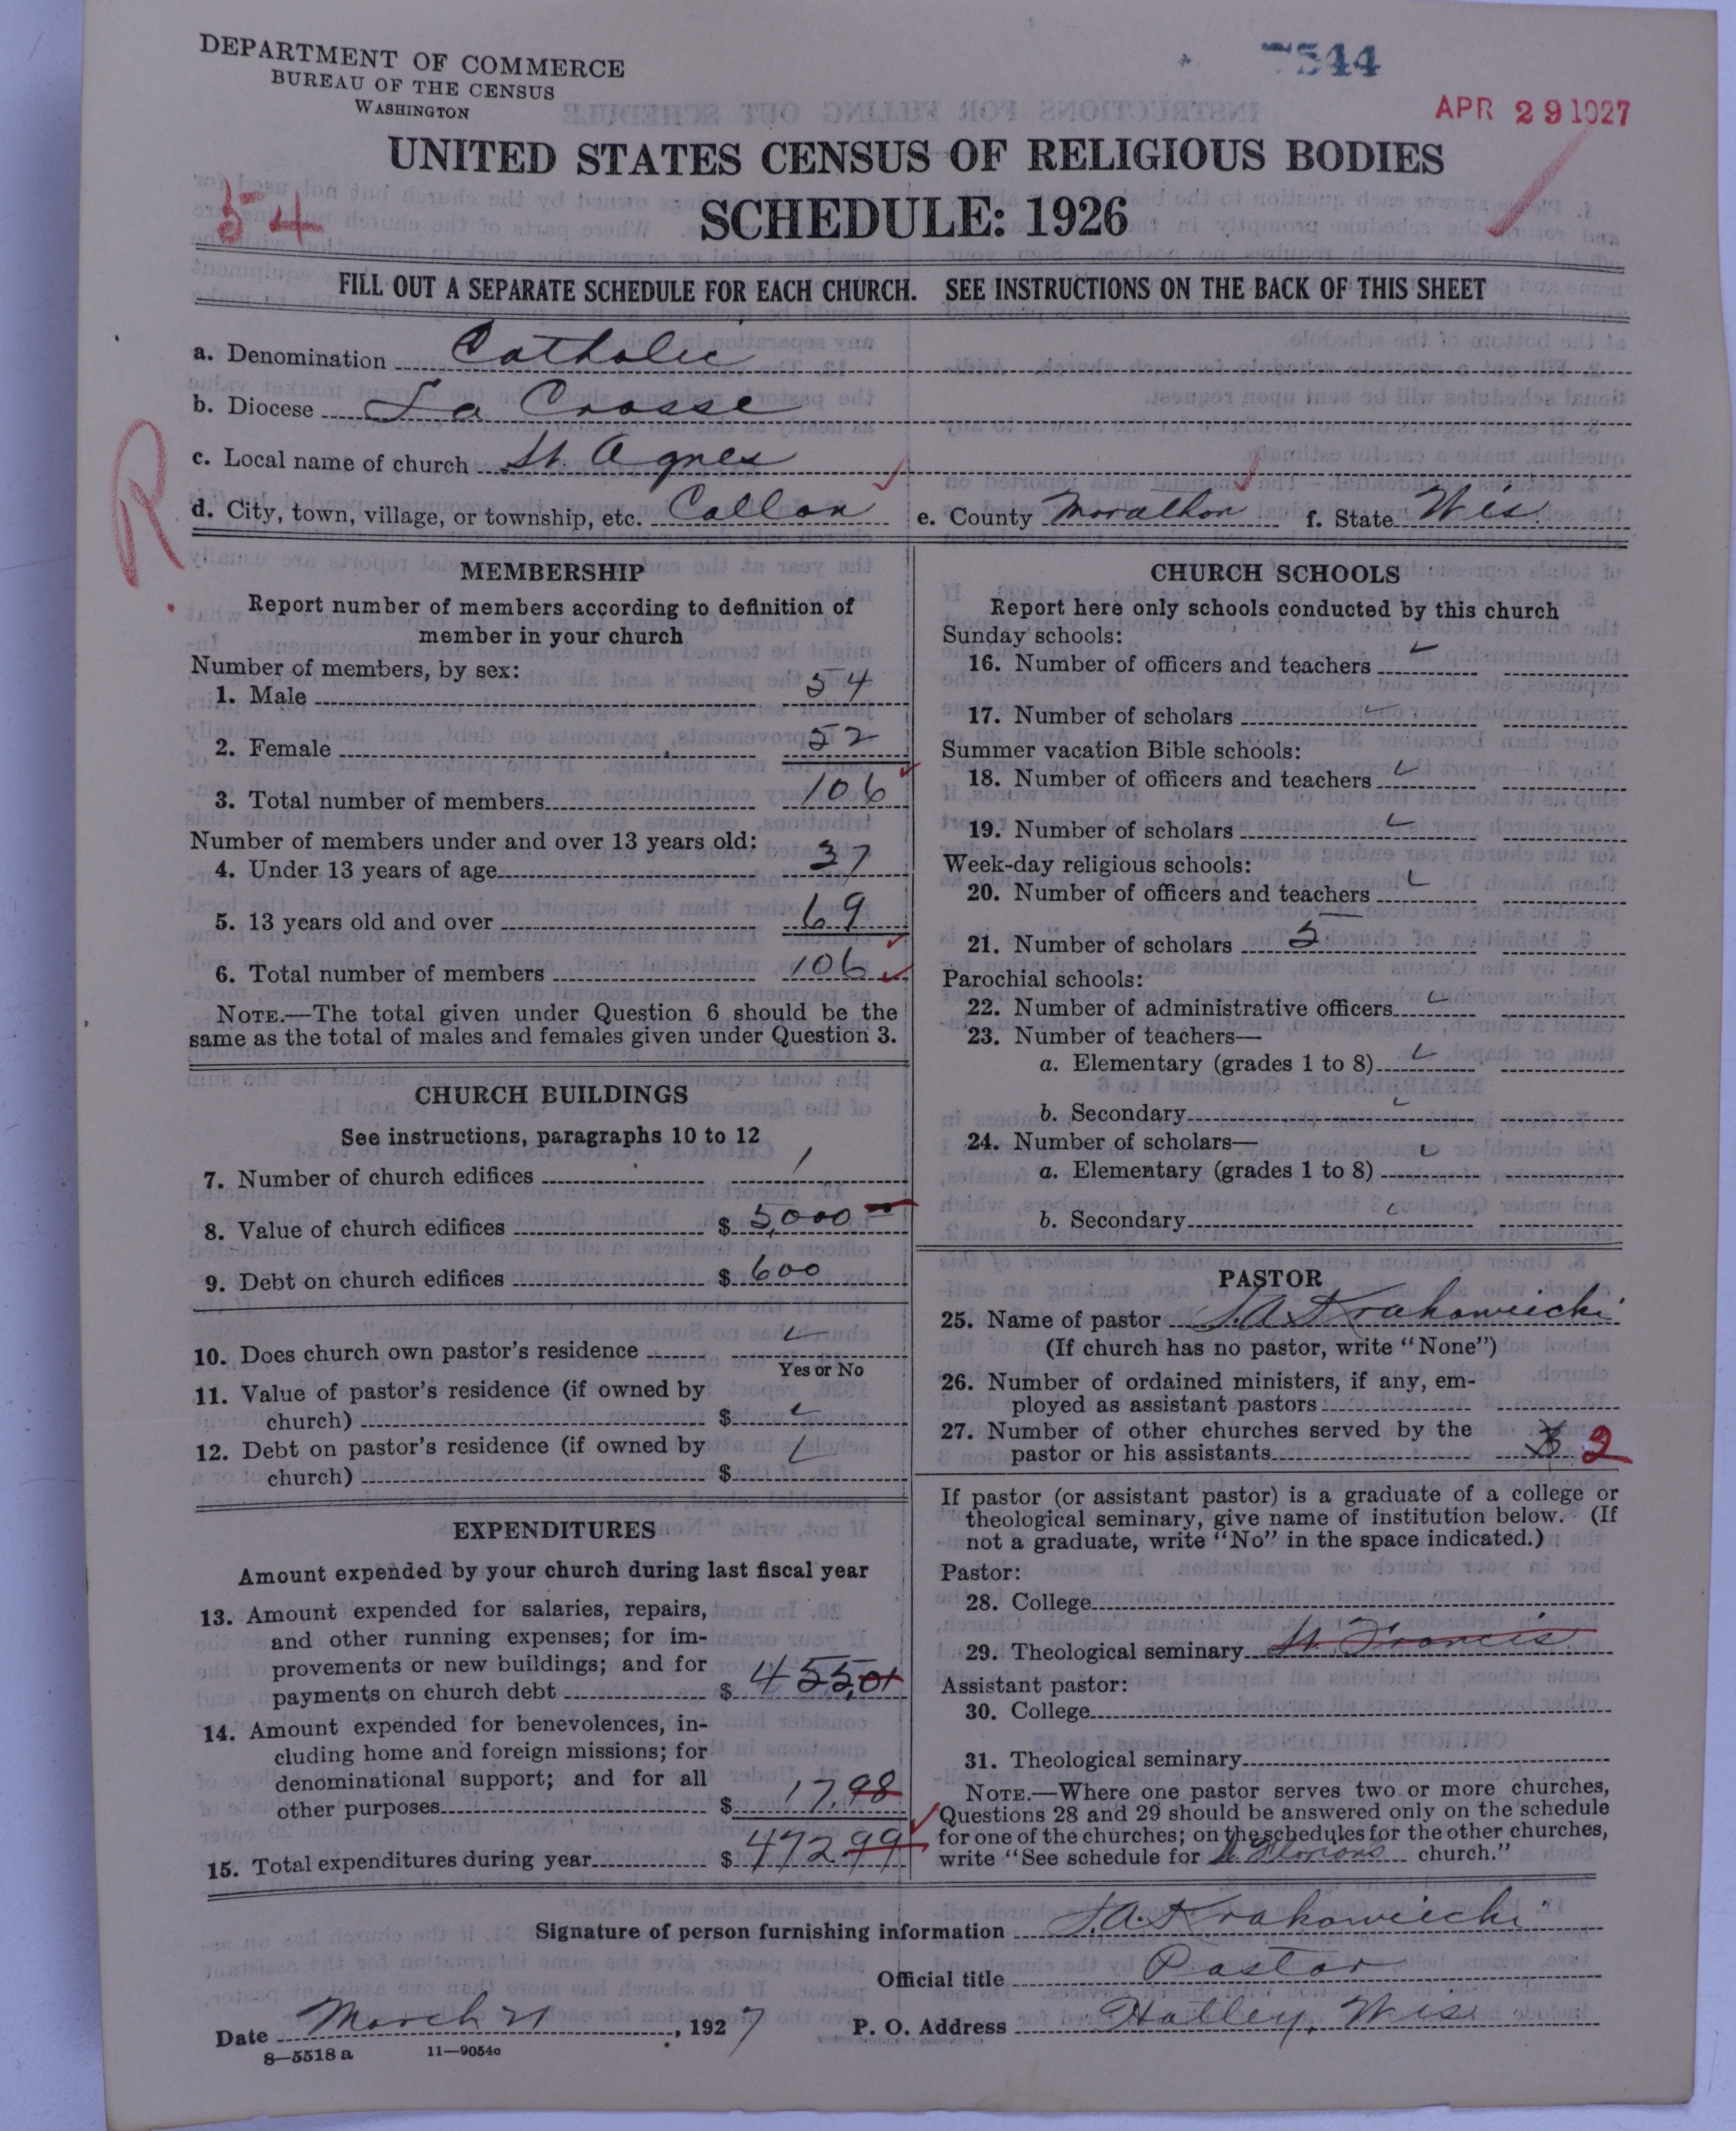 DEPARTMENT OF COMMERCE
BUREAU OF THE CENSUS
WASHINGTON
7544
APR 29 1927
UNITED STATES CENSUS OF RELIGIOUS BODIES
54
SCHEDULE: 1926
FILL OUT A SEPARATE SCHEDULE FOR EACH CHURCH. SEE INSTRUCTIONS ON THE BACK OF THIS SHEET
a. Denomination Catholic
b. Diocese La Crosse
R
c. Local name of church St. Agnes
d. City, town, village, or township, etc. Callon e. County Marathon f. State Wis.
MEMBERSHIP
Report number of members according to definition of
member in your church
Number of members, by sex:
1. Male 54
2. Female 52
3. Total number of members 106
Number of members under and over 13 years old:
4. Under 13 years of age 37
5. 13 years old and over 69
6. Total number of members 106
NOTE.—The total given under Question 6 should be the
same as the total of males and females given under Question 3.
CHURCH BUILDINGS
See instructions, paragraphs 10 to 12
7. Number of church edifices 1
8. Value of church edifices $ 5,000
9. Debt on church edifices $ 600
10. Does church own pastor's residence
Yes or No
11. Value of pastor's residence (if owned by
church) $
12. Debt on pastor's residence (if owned by
church) $
EXPENDITURES
Amount expended by your church during last fiscal year
13. Amount expended for salaries, repairs,
and other running expenses; for im-
provements or new buildings; and for
payments on church debt $ 455,01
14. Amount expended for benevolences, in-
cluding home and foreign missions; for
denominational support; and for all
other purposes $ 17.98
15. Total expenditures during year $ 472.99
CHURCH SCHOOLS
Report here only schools conducted by this church
Sunday schools:
16. Number of officers and teachers
17. Number of scholars
Summer vacation Bible schools:
18. Number of officers and teachers
19. Number of scholars
Week-day religious schools:
20. Number of officers and teachers
21. Number of scholars 5
Parochial schools:
22. Number of administrative officers
23. Number of teachers—
a. Elementary (grades 1 to 8)
b. Secondary
24. Number of scholars—
a. Elementary (grades 1 to 8)
b. Secondary
PASTOR
25. Name of pastor J.A. Krakowiecki
(If church has no pastor, write "None")
26. Number of ordained ministers, if any, em-
ployed as assistant pastors
27. Number of other churches served by the
pastor or his assistants 3 2
If pastor (or assistant pastor) is a graduate of a college or
theological seminary, give name of institution below. (If
not a graduate, write "No" in the space indicated.)
Pastor:
28. College
29. Theological seminary St. Francis
Assistant pastor:
30. College
31. Theological seminary
NOTE.—Where one pastor serves two or more churches,
Questions 28 and 29 should be answered only on the schedule
for one of the churches; on the schedules for the other churches,
write "See schedule for St. Florians church."
Signature of person furnishing information J.A. Krakowiecki
Official title Pastor
Date March 21, 1927 P. O. Address Hatley, Wis
8—5518 a 11—9054c